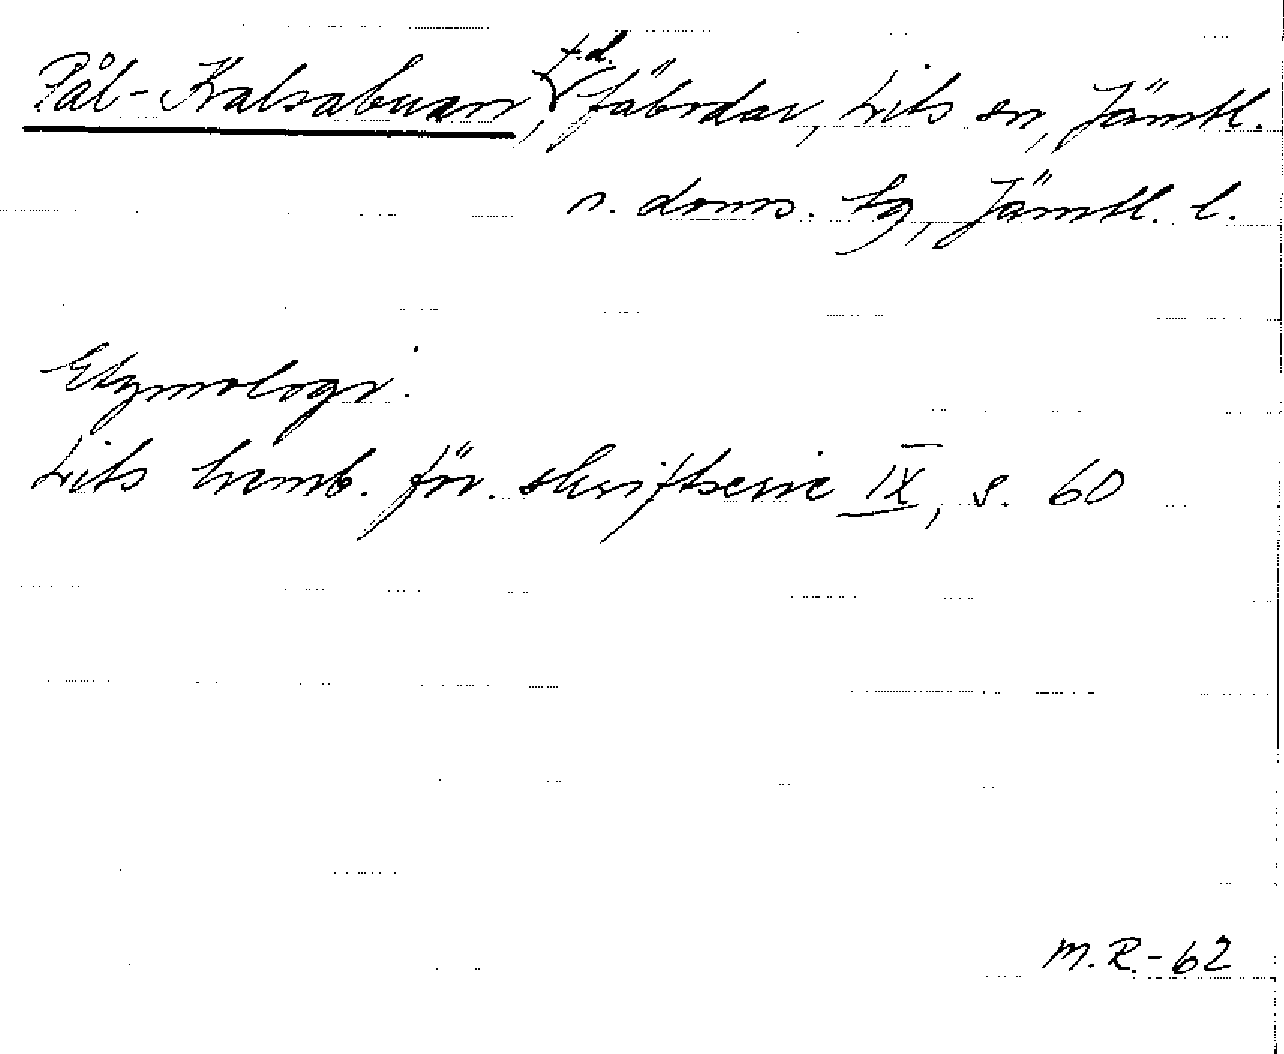 Pål-Kalsabuan, f.d. fäbodar, Lits sn, Jämtl.
n. doms. tg, Jämtl. l.
Etymologi:
Lits hemb. för. skriftserie IX, s. 60
M.R.-62